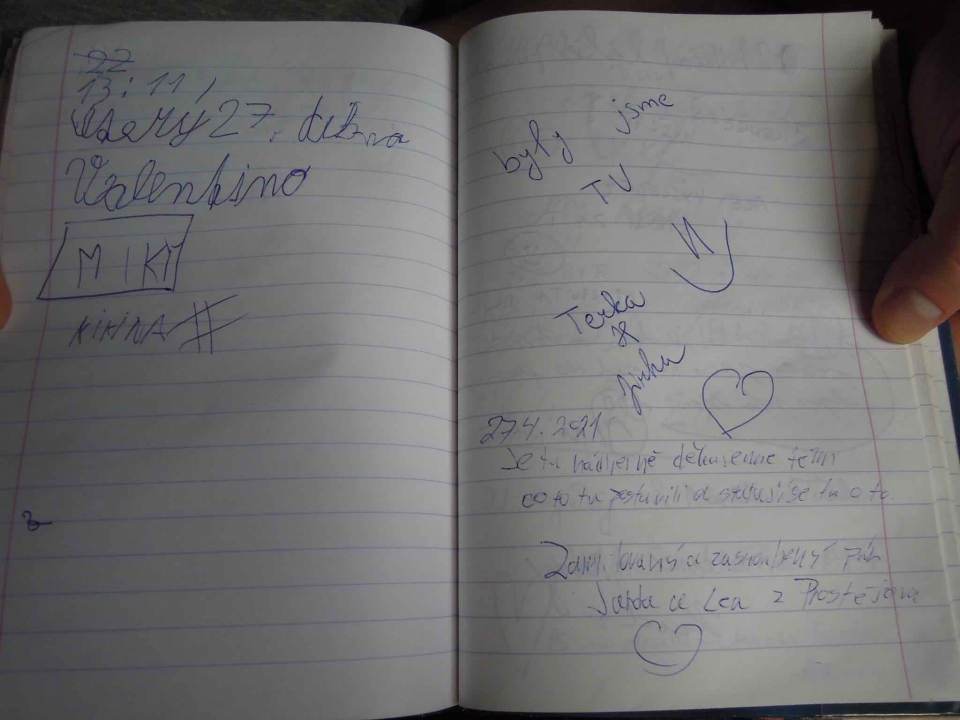 22
13:11,
27.
Valentino
MIKI
#
byly jsme
TV
Terka
&
Jirka
27.4.2021
Je tu nádherně děkujeme těm
co to tu postavili a starají se tu o to.
Zamilovaný a zasnoubený pár
Jarda a Lea z Prostějova